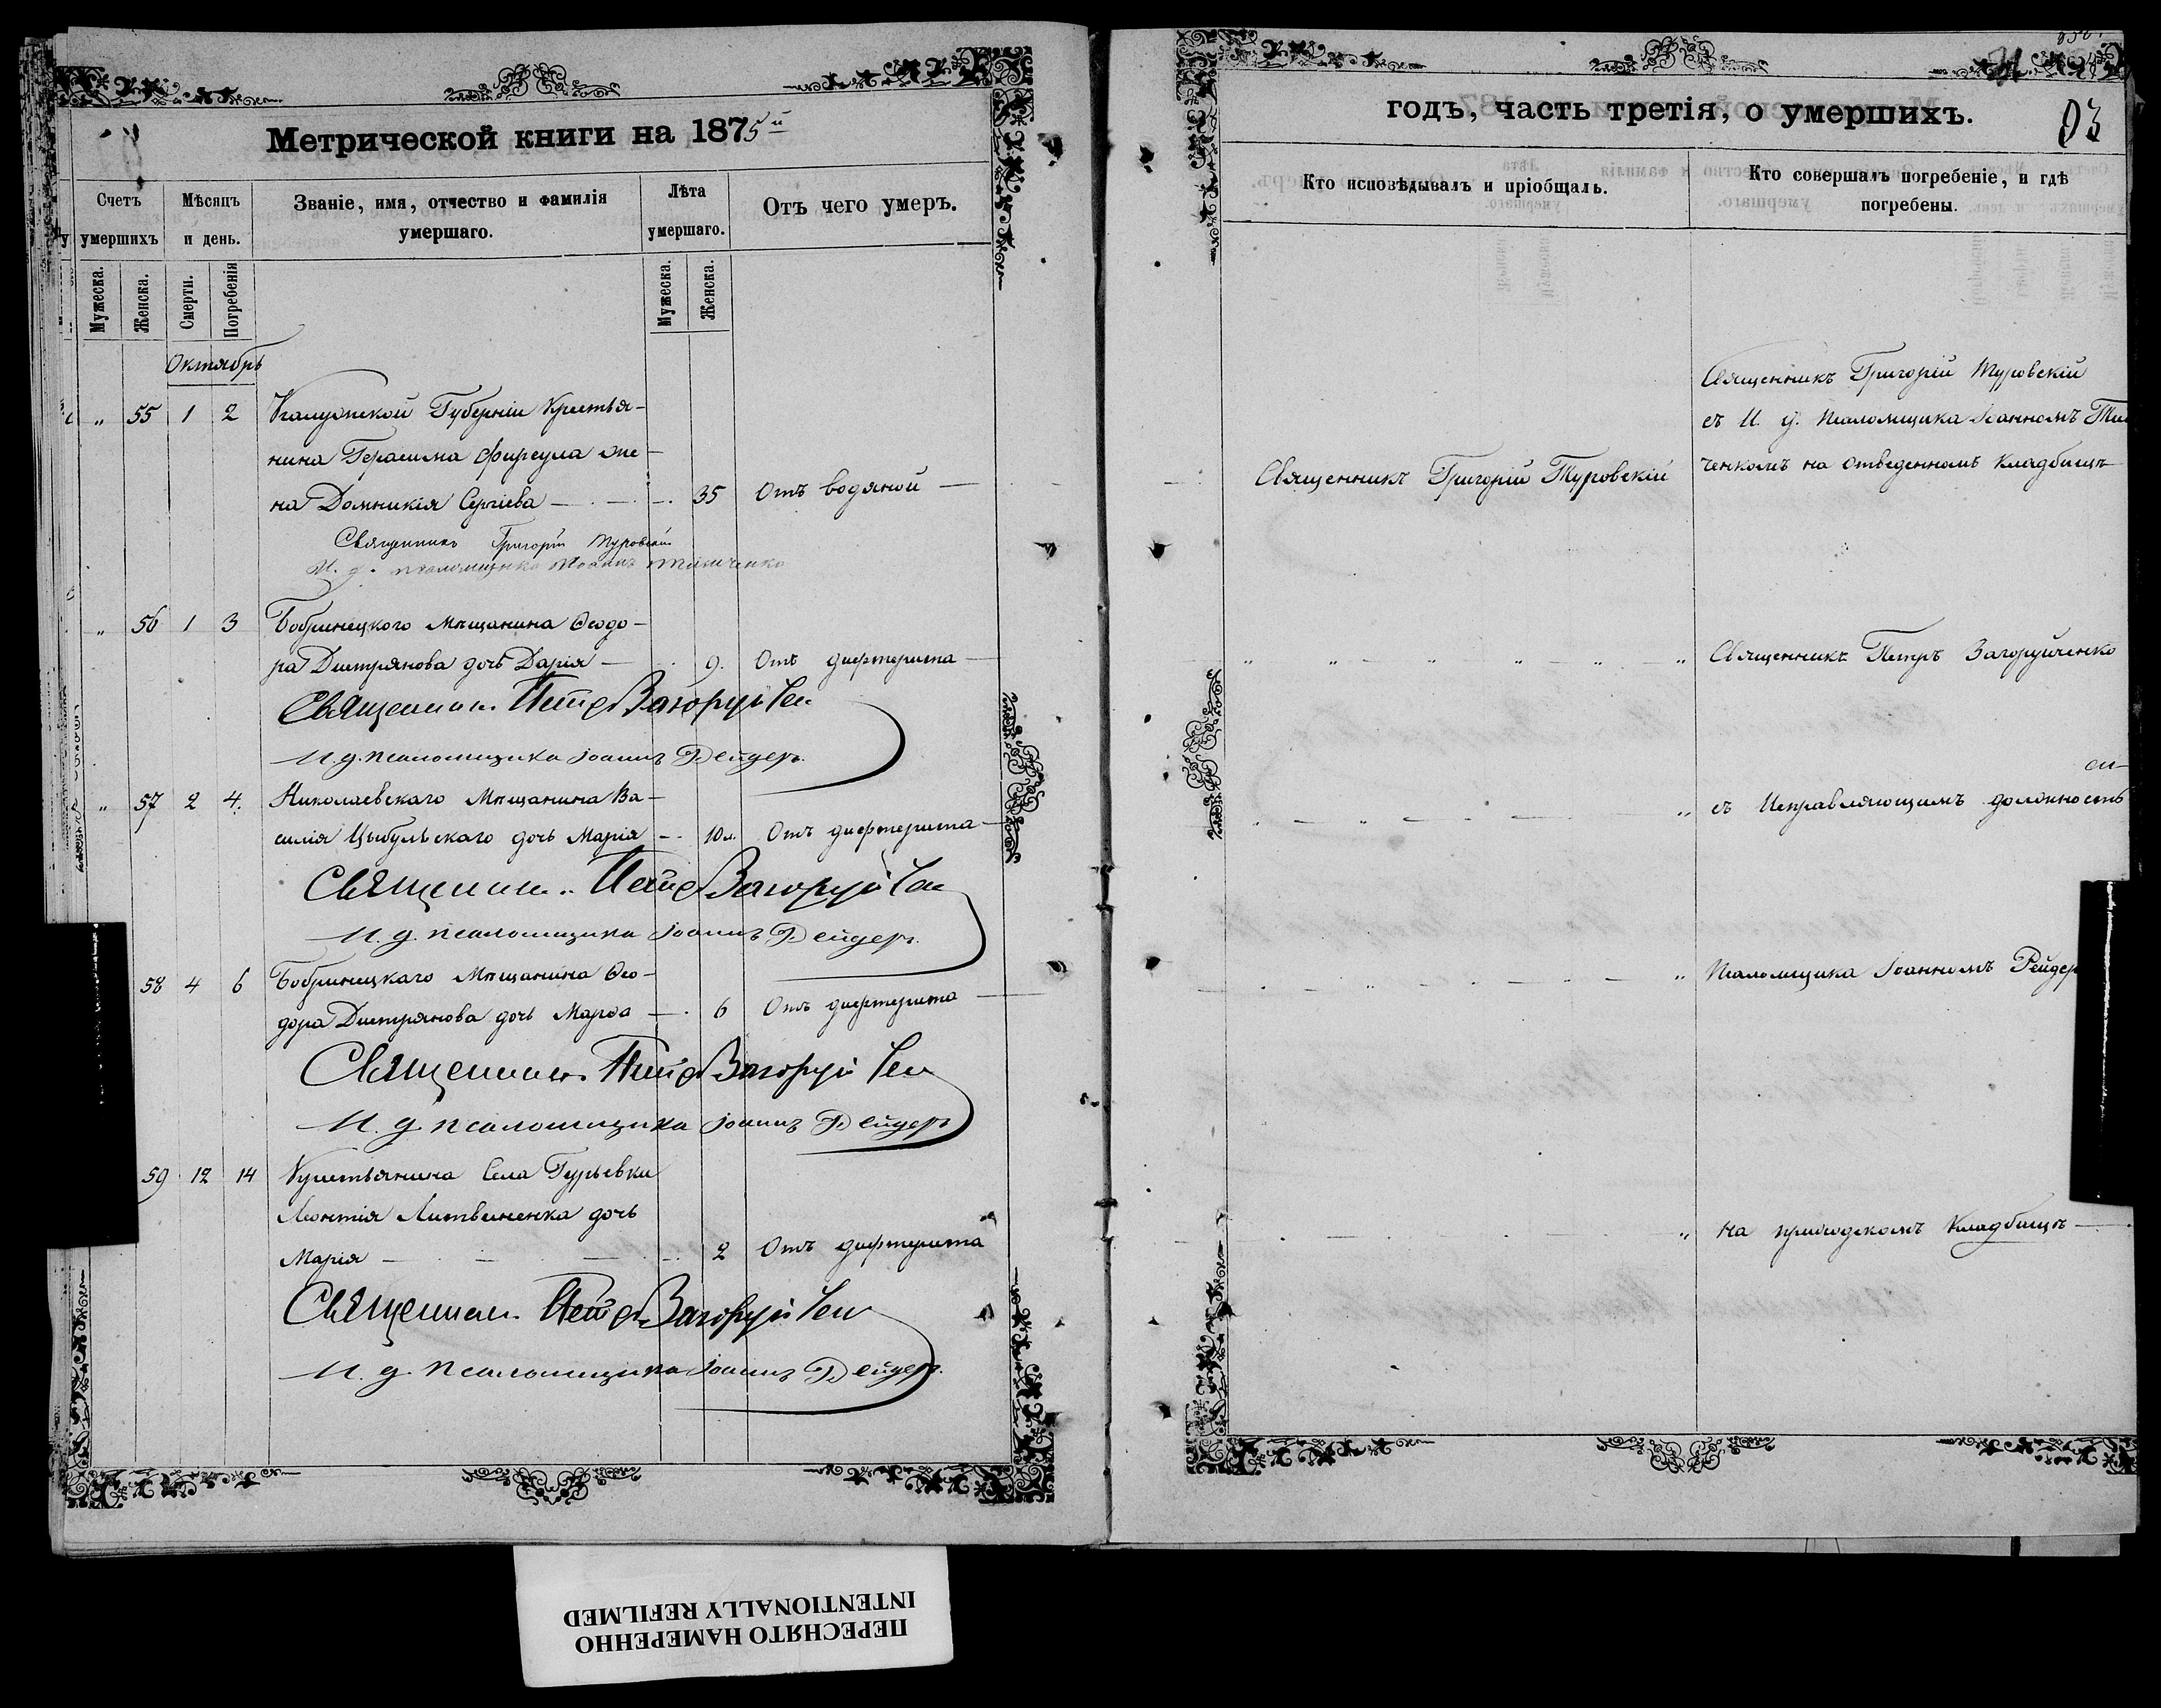 Метрической книги на 1875й
Счетъ умершихъ
Мѣсяцъ и день.
Званіе, имя, отчество и фамилія умершаго.
Лѣта умершаго.
Отъ чего умеръ.
Мужеска.
Женска.
Смерти.
Погребенія
Мужеска.
Женска.
Октябрь
„ 55 1 2 Калужской Губерніи Крестья-
нина Герасима Фиргула же-
на Домникія Сергіева — 35 Отъ водяной
Священникъ Григорій Туровскій
И. д. псаломщика Іоаннъ
„ 56 1 3 Бобринецкого Мѣщанина Ѳеодо-
ра Дмитрянова дочь Дарія — 9. Отъ дифтерита
Священник Петръ Загоруйчен
И. д. псаломщика Іоаннъ Рейдеръ.
„ 57 2 4. Николаевскаго Мѣщанина Ва-
силія Цыбульскаго дочь Марія — 10 м. Отъ дифтерита
Священник Петръ Загоруйчен
И. д. псаломщика Іоаннъ Рейдеръ.
58 4 6 Бобринецкаго Мѣщанина Ѳео-
дора Дмитрянова дочь Марѳа — 6 Отъ дифтерита
Священник Петръ Загоруйчен
И. д. псаломщика Іоаннъ Рейдеръ
59 12 14 Крестьянина Села Гурьевки
Леонтія Литвиненка дочь
Марія — 2 Отъ дифтерита
Священник Петръ Загоруйчен
И. д. псаломщика Іоаннъ Рейдеръ.
годъ, часть третія, о умершихъ.
93
Кто исповѣдывалъ и пріобщалъ.
Кто совершалъ погребеніе, и гдѣ погребены.
Священникъ Григорій Туровскій
Священникъ Григорій Туровскій
съ И. д. псаломщика Іоанномъ
ченкомъ на отведенномъ кладбищѣ
„ „ „ „ „ „ Священникъ Петръ Загоруйченко
„ съ Исправляющимъ должность
„ Псаломщика Іоанномъ Рейдер
„ на приходскомъ кладбищѣ
ПЕРЕСНЯТО НАМЕРЕННО
INTENTIONALLY REFILMED